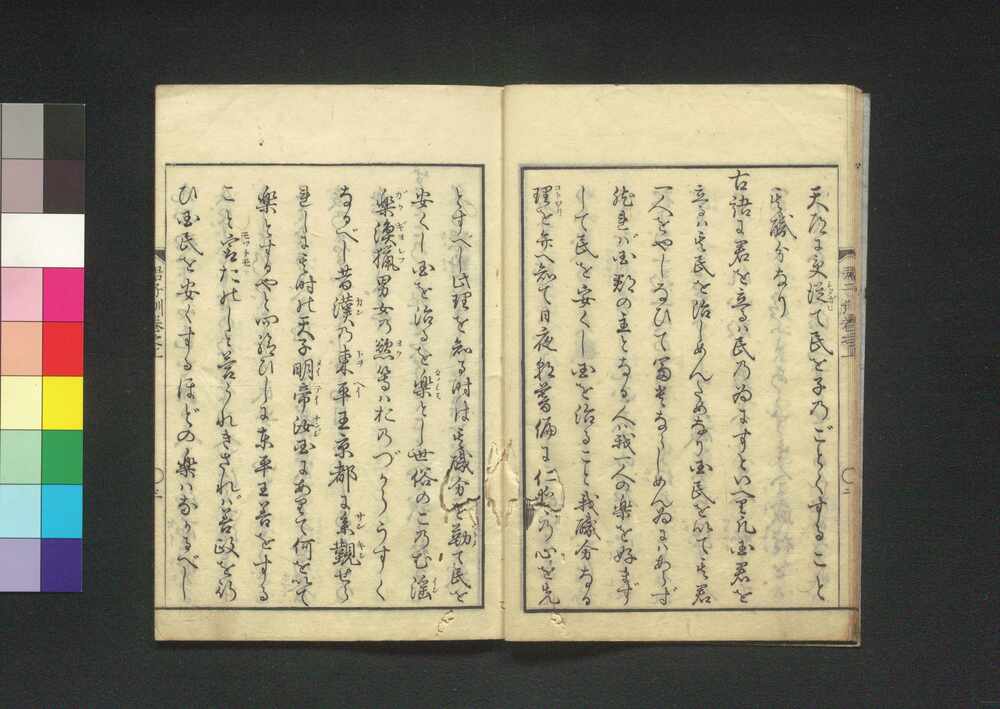 天道に更従て民を子のごとくすること
其職分なり
古語に君を立るハ民の為にすといへり凡国君を
立るハ其民を治しめんためなり国民を以て其君
一人をやしなひて富貴ならしめん為にハあらず
然れバ国郡の主となる人ハ我一人の楽を好まず
して民を安くし国を治ること我職分なる
理を弁へ知て日夜朝暮偏に仁愛の心を先
とすべし此理を知る時は其職分を勤て民を
安くし国を治るを楽とし世俗のこのむ淫
楽漁猟男女の慾等ハおのづからうすく
なるべし昔漢の東平王京都に参観せら
れしに其時の天子明帝汝国にありて何を以て
楽とするやと問給ひしに東平王善をする
こと尤たのしと答られきされバ善政を行
ひ国民を安くするほどの楽ハなかるべし
君子訓巻之上